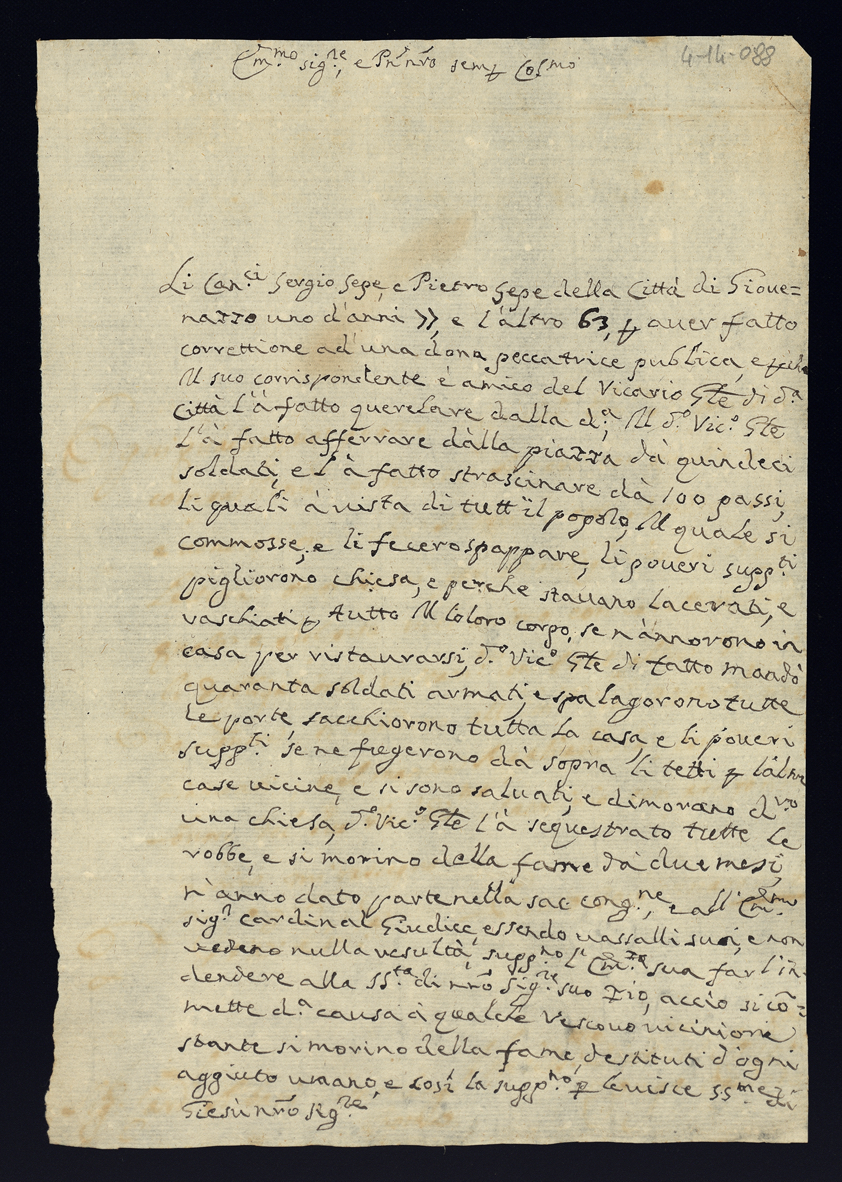 Em.mo sig.re, e Pn̄ n̄ro semp Cos.mo
4-14-088
Li Can.ci Sergio Sepe, e Pietro Sepe della Città di Gioue=
nazzo uno d'anni 77, e l'altro 63, p auer fatto
correttione ad una dona peccatrice publica, e pche
Il suo corrispondente é amico del Vicario Gle di d.a
Città l'à fatto querelare dalla d.a, Il d.o Vic.o Gle
l'à fatto afferrare dàlla piazza dà quindeci
soldati, e l'à fatto strascinare dà 100 passi,
li quali à vista di tutt'il popolo, Il quale si
commosse, e li fecero spappare, li poueri supp.ti
pigliorono chiesa, e perche stauano lacerati, e
vaschiati p tutto Il loloro corpo, se n'annorono in
casa per ristaurarsi, d.o Vic.o Gle di fatto mandò
quaranta soldati armati, e spalagorono tutte
le porte, sacchiorono tutta la casa, e li poueri
supp.ti se ne fuegerono dà sopra li tetti p l'altre
case uicine, e si sono saluati, e dimorano d.ro
una chiesa, d.o Vic.o Gle l'à sequestrato tutte le
robbe, e si morino della fame dà due mesi,
n'anno dato parte nella sac cong.ne, e all' Em.mo
sig.r cardinal Giudice, essendo uassalli suoi, e non
uedeno nulla resultà, supp.no l'Em.za sua far l'in-
dendere alla SS.ta di nr̄o Sig.re suo Zio, acciò si cō=
mette d.a causa à qualche Vescouo uicinione
stante si morino della fame, destituti d'ogni
aggiuto umano, e così la supp.no p le uisce SS.me di
Giesù nr̄o sig.re